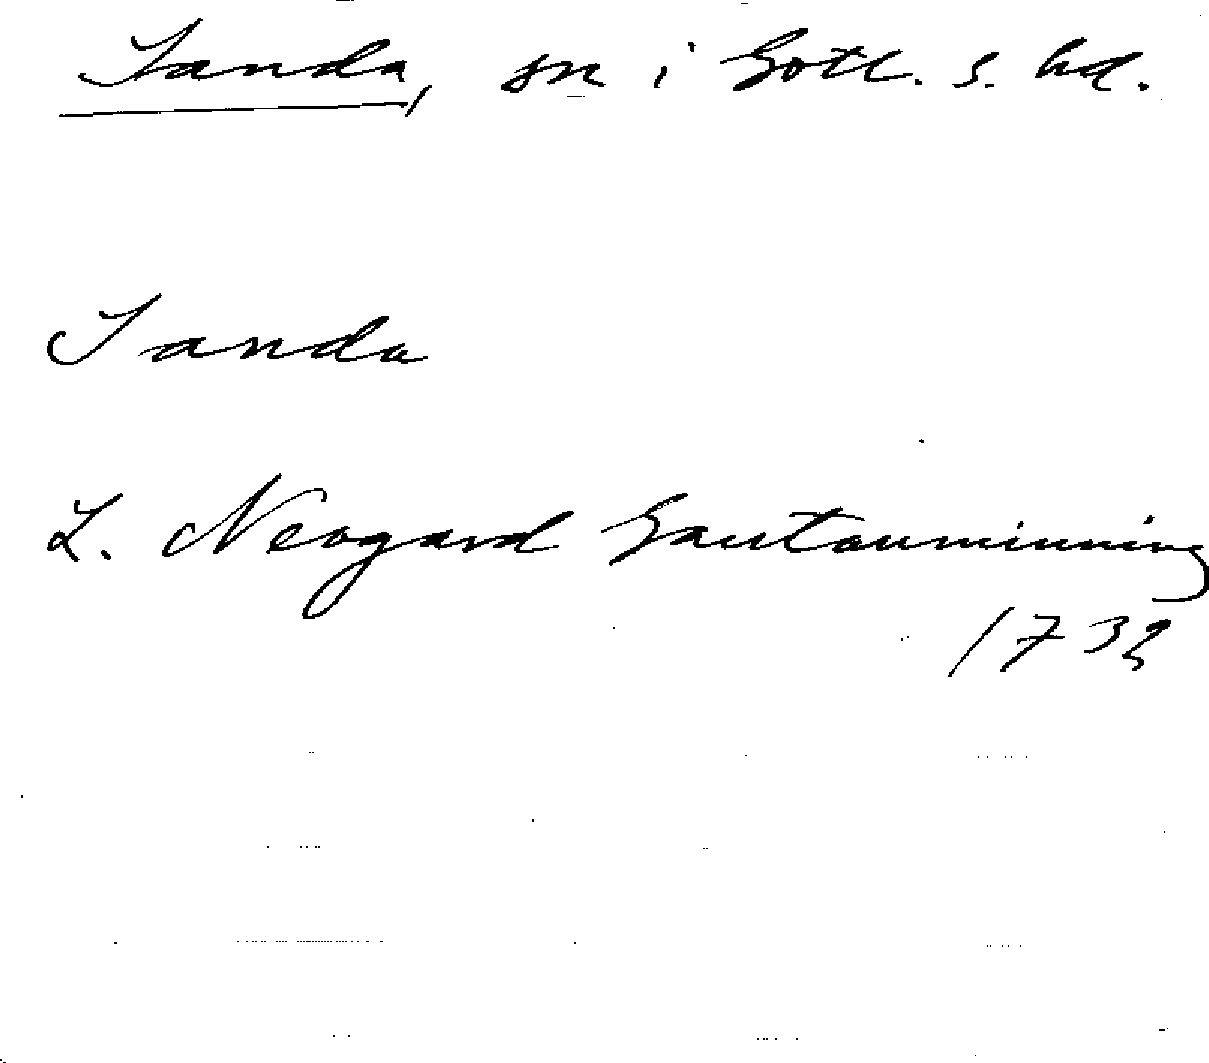 Sanda, sn i Gotl. s. hd.
Sanda
L. Neogard Gautauminning
1732